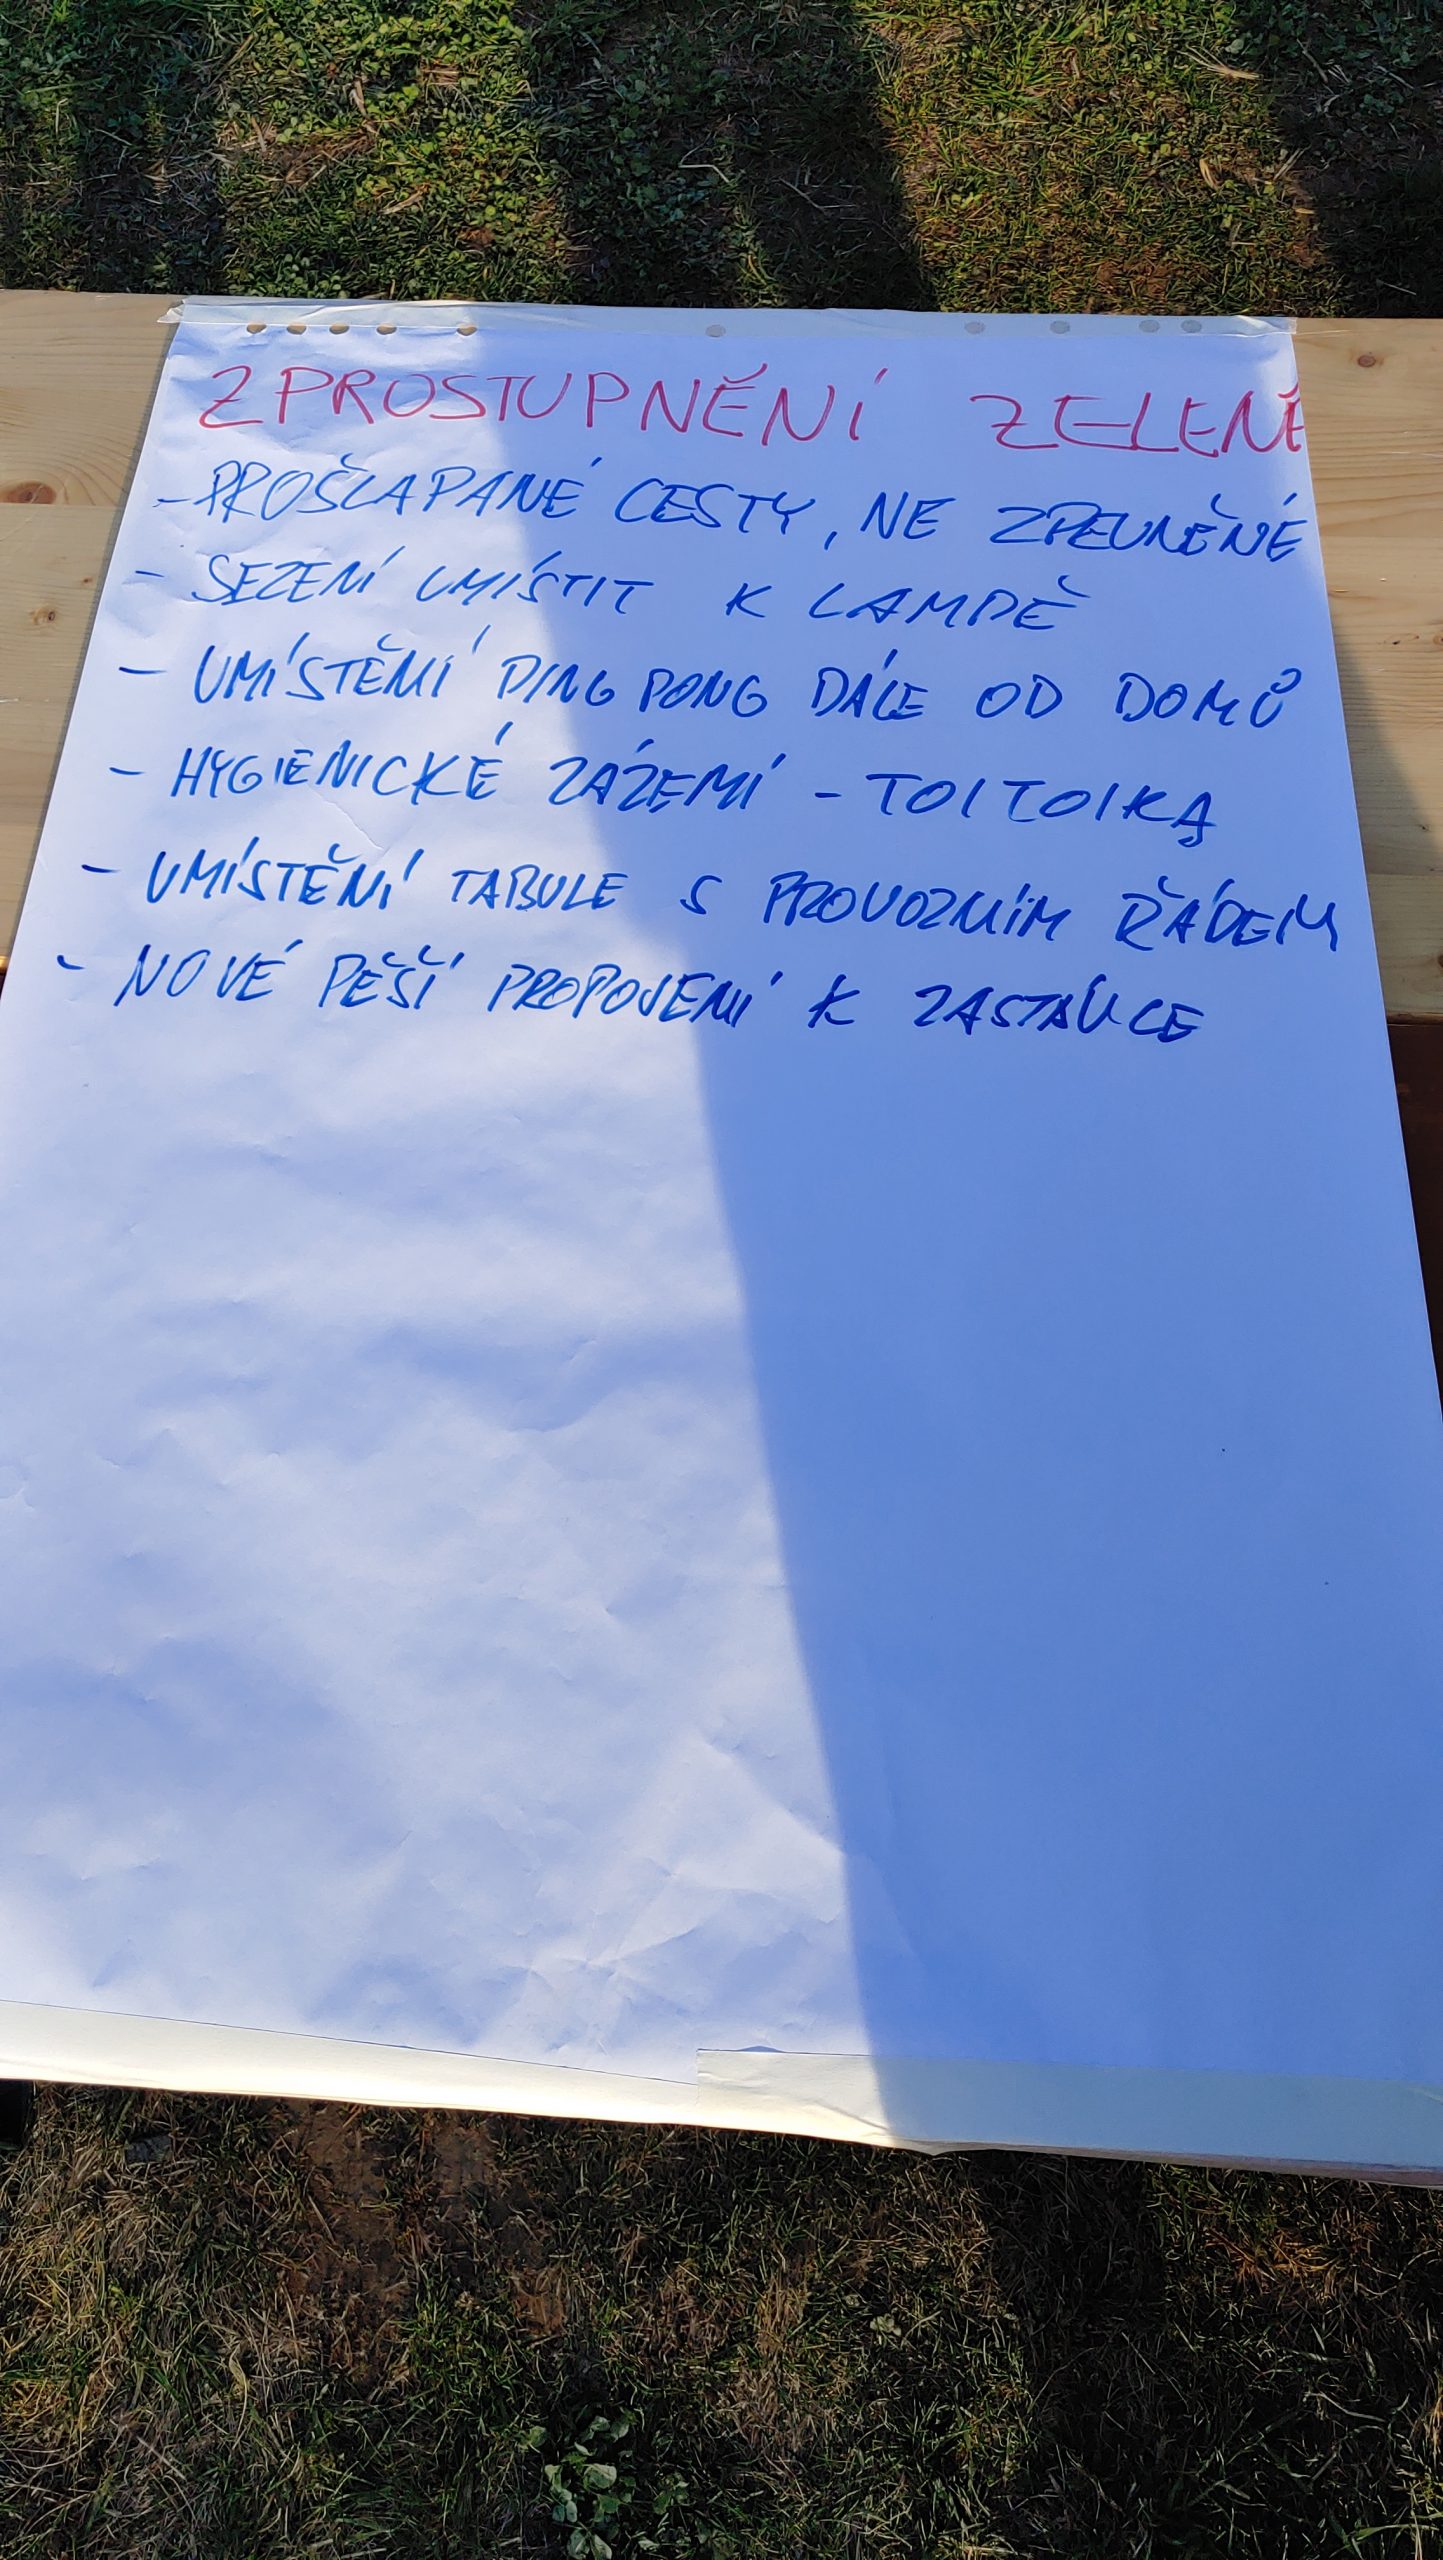 ZPROSTUPNĚNÍ ZELENĚ
- PROŠLAPANÉ CESTY, NE ZPEVNĚNÉ
- SEZENÍ UMÍSTIT K LAMPĚ
- UMÍSTĚNÍ PING PONG DÁLE OD DOMŮ
- HYGIENICKÉ ZÁZEMÍ - TOITOIKA
- UMÍSTĚNÍ TABULE S PROVOZNÍM ŘÁDEM
- NOVÉ PĚŠÍ PROPOJENÍ K ZASTÁVCE